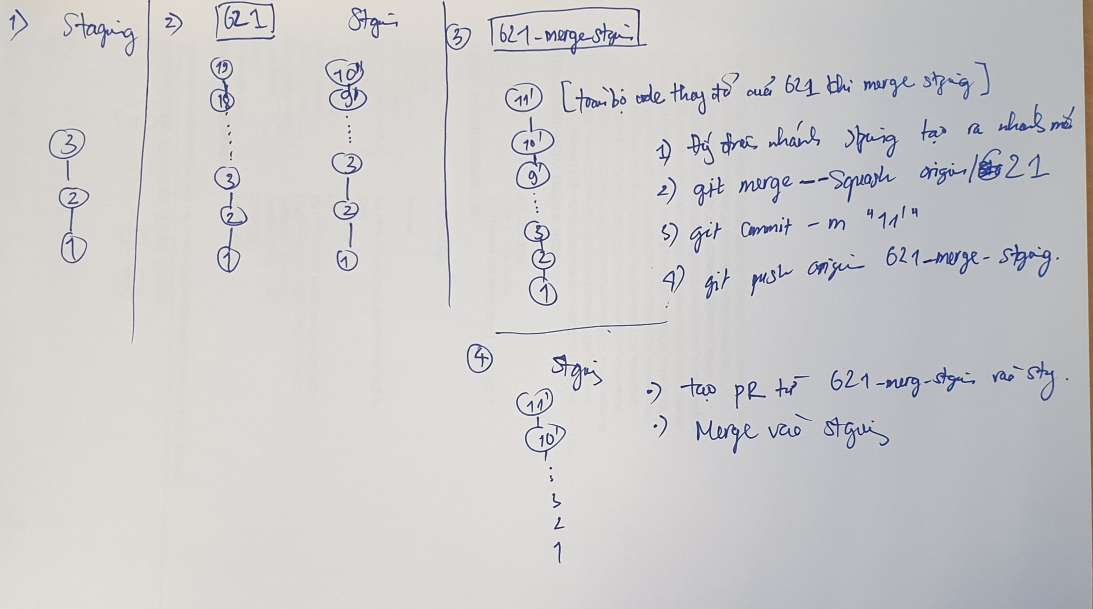 1) Staging
3
2
1
2) 621
19
18
3
2
1
Stgin
10'
9'
3
2
1
3 621-merge-stgin
11' [toàn bộ code thay đổi của 621 khi merge stging]
10'
9'
3
2
1
1) Đứng trên nhánh stging tạo ra nhánh mới
2) git merge --Squash origin/621
3) git commit -m "11'"
4) git push origin 621-merge-stging.
4 Stging
11'
10'
3
2
1
•) tạo PR từ 621-merg-stgin vào stg.
•) Merge vào stging